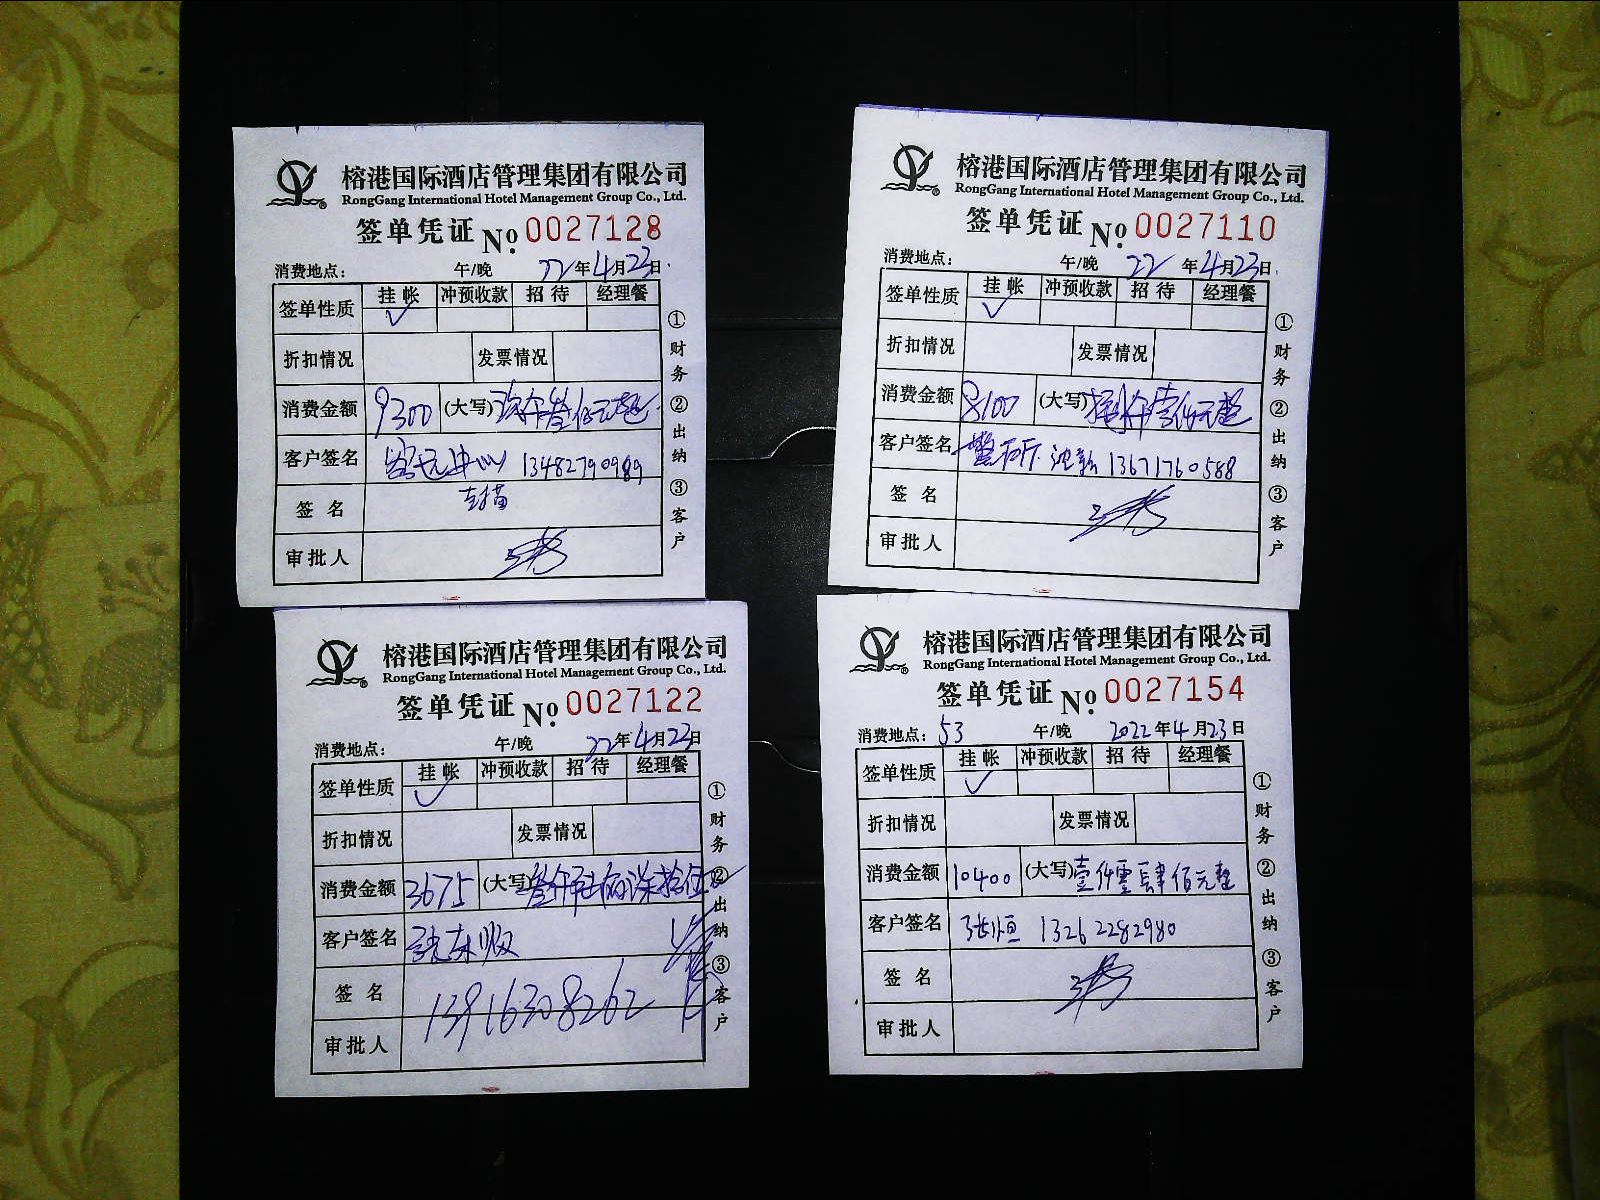 榕港国际酒店管理集团有限公司
RongGang International Hotel Management Group Co., Ltd.
签单凭证 No. 0027128
消费地点: 午/晚 22年4月23日
签单性质 挂帐 冲预收款 招待 经理餐
✓
折扣情况 发票情况
消费金额 9300 (大写) 仟叁佰元整
客户签名 13482790989
签名
审批人
①财务 ②出纳 ③客户
榕港国际酒店管理集团有限公司
RongGang International Hotel Management Group Co., Ltd.
签单凭证 No. 0027110
消费地点: 午/晚 22年4月23日
签单性质 挂帐 冲预收款 招待 经理餐
✓
折扣情况 发票情况
消费金额 8100 (大写) 仟壹佰元整
客户签名 13671760588
签名
审批人
①财务 ②出纳 ③客户
榕港国际酒店管理集团有限公司
RongGang International Hotel Management Group Co., Ltd.
签单凭证 No. 0027122
消费地点: 午/晚 22年4月23日
签单性质 挂帐 冲预收款 招待 经理餐
✓
折扣情况 发票情况
消费金额 3675 (大写) 叁仟陆佰柒拾伍
客户签名
签名 13916308262
审批人
①财务 ②出纳 ③客户
榕港国际酒店管理集团有限公司
RongGang International Hotel Management Group Co., Ltd.
签单凭证 No. 0027154
消费地点: 53 午/晚 2022年4月23日
签单性质 挂帐 冲预收款 招待 经理餐
✓
折扣情况 发票情况
消费金额 10400 (大写) 壹仟零肆佰元整
客户签名 张恒 13262282980
签名
审批人
①财务 ②出纳 ③客户